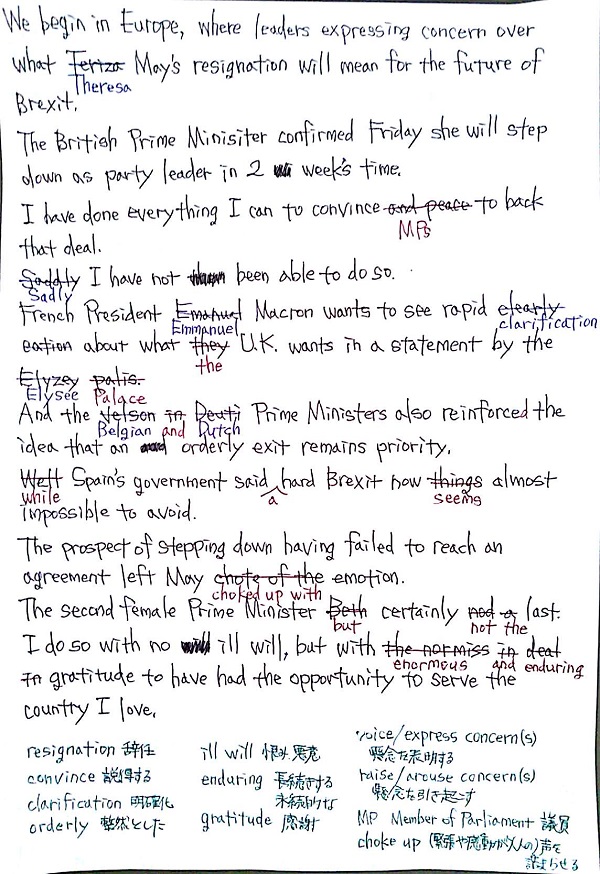 We begin in Europe, where leaders expressing concern over
what Teriza May's resignation will mean for the future of
Theresa
Brexit.
The British Prime Minisiter confirmed Friday she will step
down as party leader in 2 week's time.
I have done everything I can to convince and peace to back
MPs
that deal.
Saddly I have not been able to do so.
Sadly
French President Emanuel Macron wants to see rapid clearly
Emmanuel clarification
cation about what they U.K. wants in a statement by the
the
Elyzey palis.
Elysée Palace
And the Velson in Deuti Prime Ministers also reinforced the
Belgian and Dutch
idea that an orderly exit remains priority.
Weft Spain's government said hard Brexit now things almost
while a seems
impossible to avoid.
The prospect of stepping down having failed to reach an
agreement left May chote of the emotion.
choked up with
The second female Prime Minister Both certainly nod a last.
but not the
I do so with no ill will, but with the normiss in deal
enormous and enduring
in gratitude to have had the opportunity to serve the
country I love.
resignation 辞任 ill will 恨み 悪意 voice/express concern(s)
懸念を表明する
convince 説得する enduring 長続きする raise/arouse concern(s)
永続的な 懸念を引き起こす
clarification 明確化 gratitude 感謝 MP Member of Parliament 議員
orderly 整然とした choke up (緊張や感動が人の)声を
詰まらせる